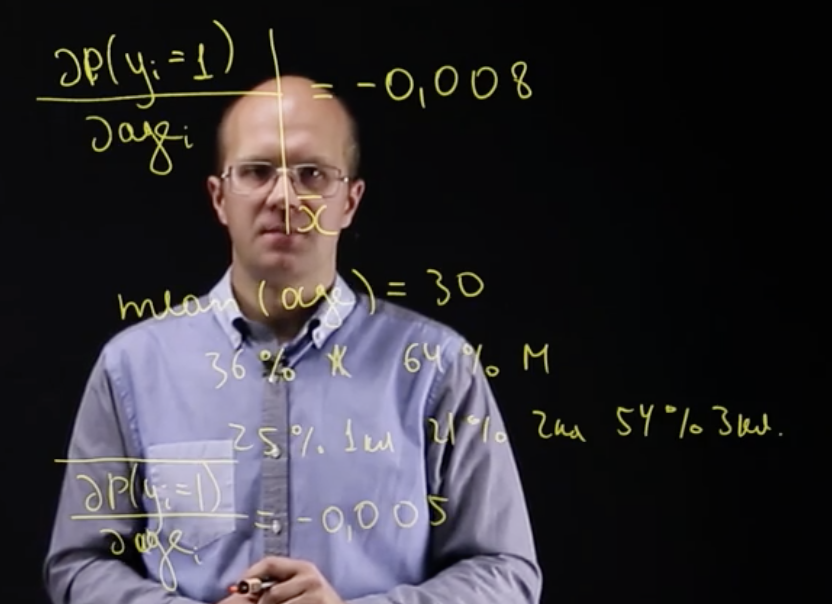 ∂P(yᵢ=1)
∂ageᵢ
= -0,008
x̄
mean (age) = 30
36% Ж 64% М
25% 1кл 21% 2кл 54% 3кл.
∂P(yᵢ=1)
∂ageᵢ
= -0,005